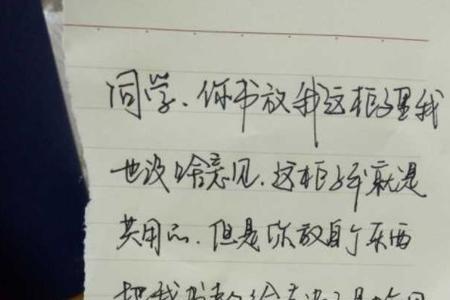 同学、你书放我这柜子里我
也没啥意见、这柜子本就是
共用的、但是你放自个东西
把我书都给